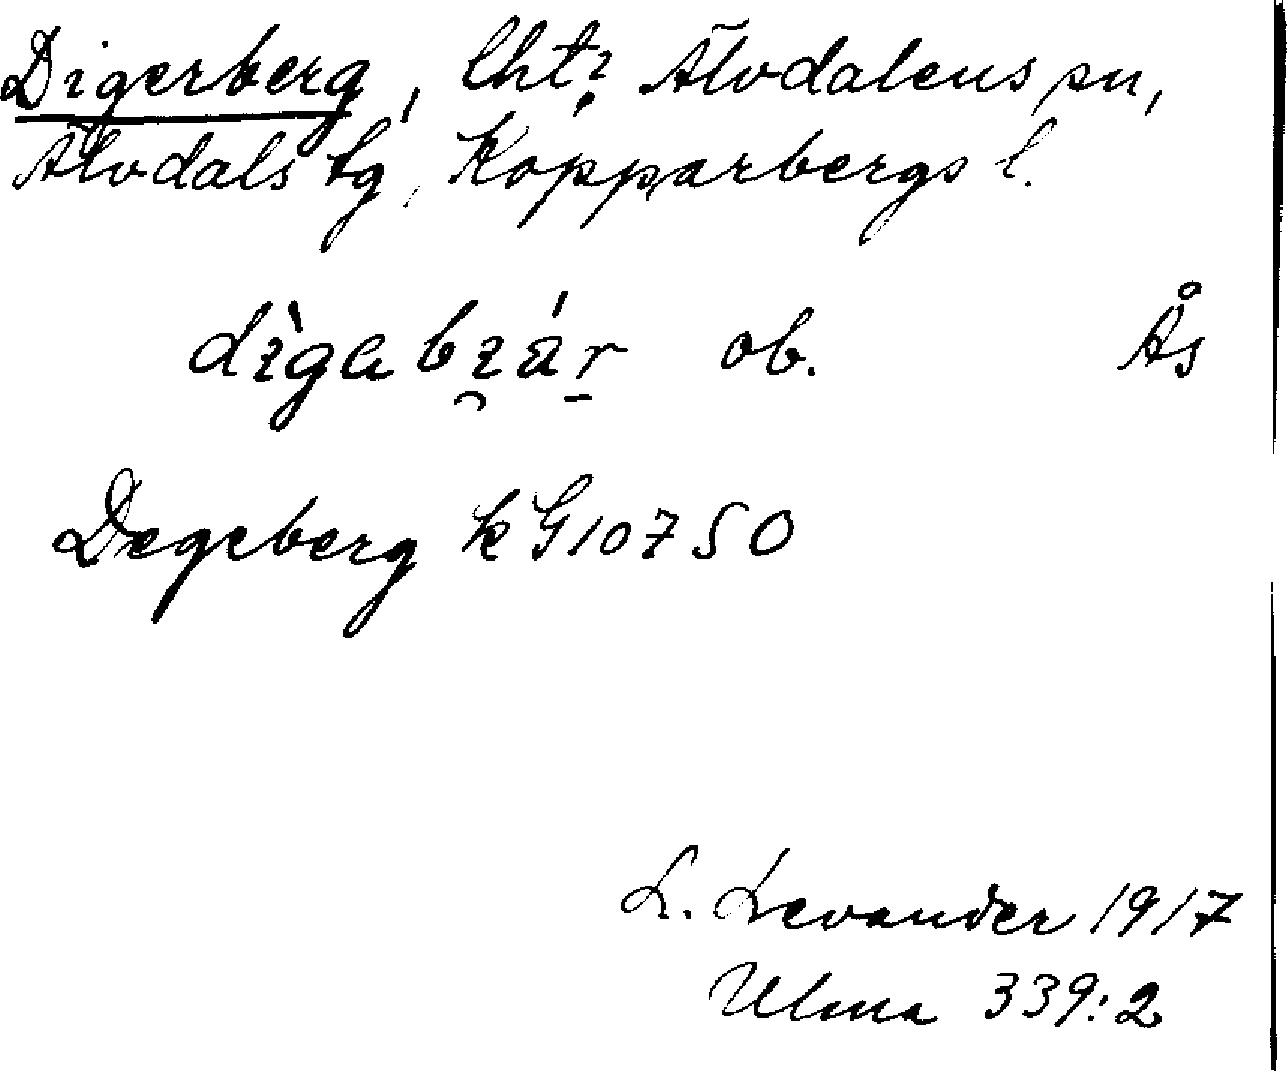 Digerberg, lht? Älvdalens sn,
Älvdals tg, Kopparbergs l.
ob. Ås
Degeberg k G10750
L. Levander 1917
Ulma 339:2